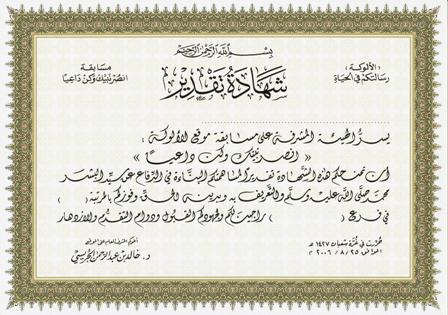 بسم الله الرحمن الرحيم
(الألوكة)
رسالتكم في الحياة
شهادة تقدير
مسابقة
انصر نبيك وكن داعيا
يسر الهيئة المشرفة على مسابقة موقع الألوكة :
« انصر نبيك وكن داعيا »
أن تمنحكم هذه الشهادة تقديرا لمساهمتكم البناءة في الدفاع عن سيد البشر
محمد صلى الله عليه وسلم والتعريف به وبدينه الحق وفوزكم بالمرتبة ( )
في فرع ( ) راجين لكم ولجهودكم القبول ودوام التقدم والازدهار
حررت في غرة شعبان ١٤٢٧ هـ
الموافق ٢٥ / ٨ / ٢٠٠٦ م
المشرف العام على الموقع
د. خالد بن عبد الرحمن الجريسي